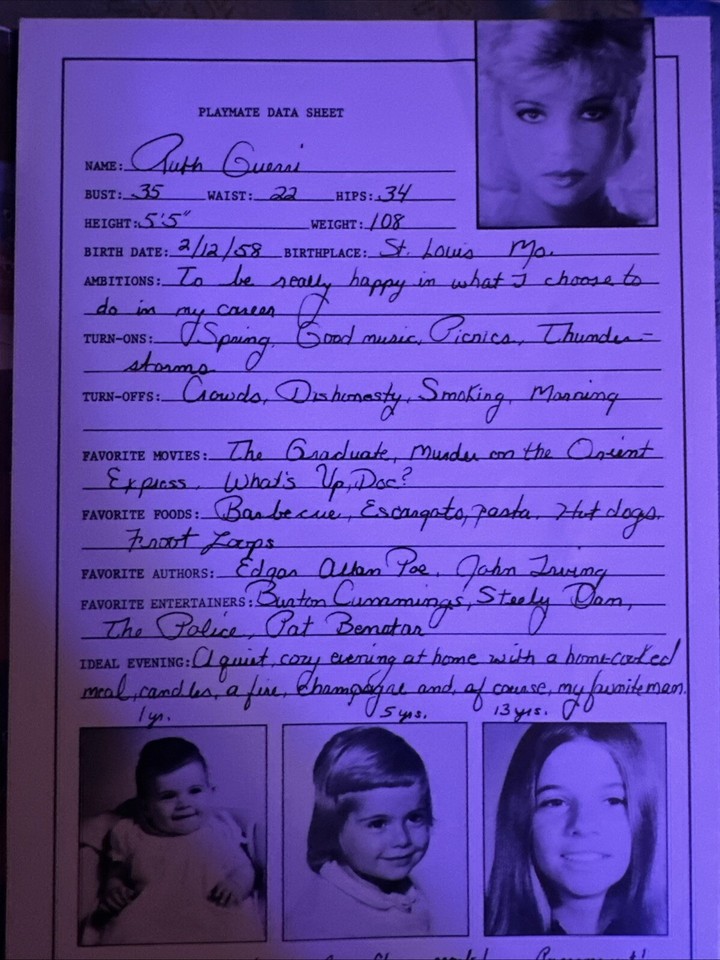 PLAYMATE DATA SHEET
NAME: Ruth Guerri
BUST: 35 WAIST: 22 HIPS: 34
HEIGHT: 5'5" WEIGHT: 108
BIRTH DATE: 2/12/58 BIRTHPLACE: St. Louis Mo.
AMBITIONS: To be really happy in what I choose to
do in my career
TURN-ONS: Spring, Good music, Picnics, Thunder-
storms
TURN-OFFS: Crowds, Dishonesty, Smoking, Morning
FAVORITE MOVIES: The Graduate, Murder on the Orient
Express, What's Up, Doc?
FAVORITE FOODS: Barbecue, Escargots, pasta, Hot dogs,
Froot Loops
FAVORITE AUTHORS: Edgar Allan Poe, John Irving
FAVORITE ENTERTAINERS: Burton Cummings, Steely Dan,
The Police, Pat Benatar
IDEAL EVENING: A quiet, cozy evening at home with a home-cooked
meal, candles, a fire, champagne and, of course, my favorite man.
1 yr. 5 yrs. 13 yrs.